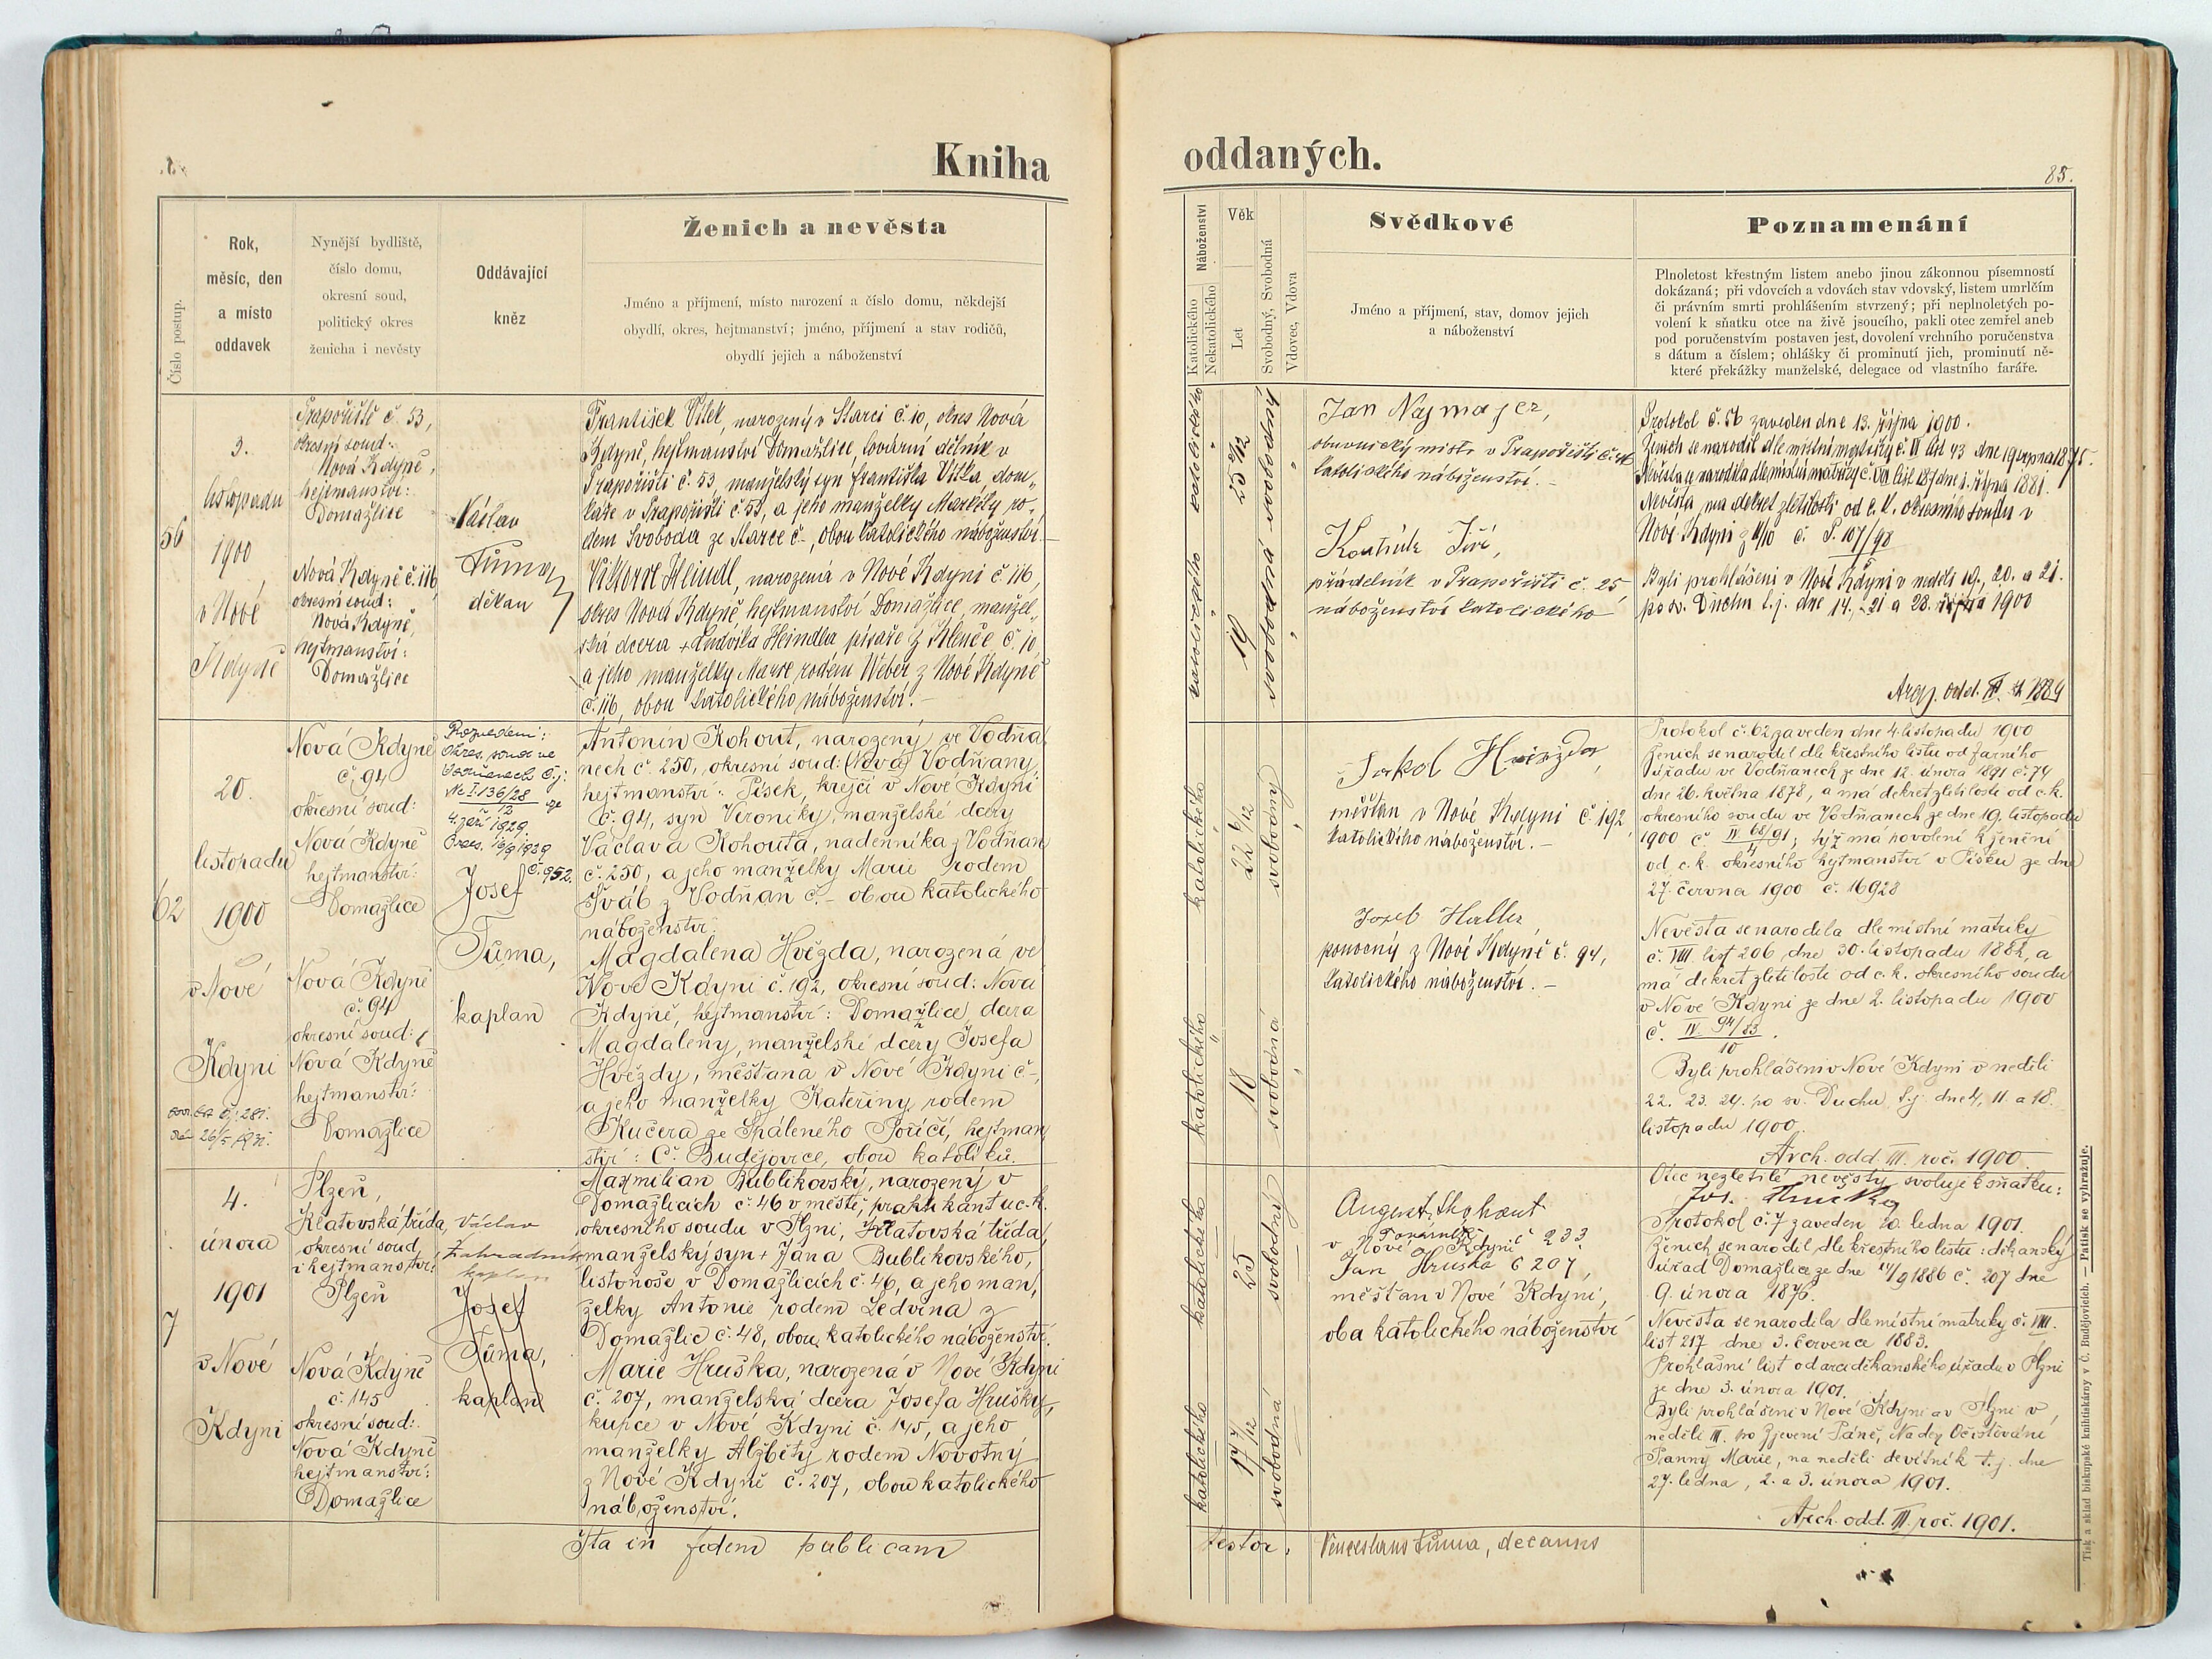 Kniha
oddaných.
85.
Číslo postup.
Rok,
měsíc, den
a místo
oddavek
Nynější bydliště,
číslo domu,
okresní soud,
politický okres
ženicha i nevěsty
Oddávající
kněz
Ženich a nevěsta
Jméno a příjmení, místo narození a číslo domu, někdejší
obydlí, okres, hejtmanství; jméno, příjmení a stav rodičů,
obydlí jejich a náboženství
Náboženství
Katolického
Nekatolického
Věk
Let
Svobodný, Svobodná
Vdovec, Vdova
Svědkové
Jméno a příjmení, stav, domov jejich
a náboženství
Poznamenání
Plnoletost křestným listem anebo jinou zákonnou písemností
dokázaná; při vdovcích a vdovách stav vdovský, listem umrlčím
či právním smrti prohlášením stvrzený; při neplnoletých po-
volení k sňatku otce na živě jsoucího, pakli otec zemřel aneb
pod poručenstvím postaven jest, dovolení vrchního poručenstva
s dátum a číslem; ohlášky či prominutí jich, prominutí ně-
které překážky manželské, delegace od vlastního faráře.
56
3.
listopadu
1900
v Nové
Kdyně
Prapořiště č. 53,
okresní soud:
Nová Kdyně,
hejtmanství:
Domažlice
Nová Kdyně č. 116
okresní soud:
Nová Kdyně,
hejtmanství:
Domažlice
Václav
Tůma
děkan
František Vítek, narozený v Starci č. 10, okres Nová
Kdyně, hejtmanství Domažlice, tovární dělník v
Prapořišti č. 53, manželský syn Františka Vítka, dom„
káře v Prapořišti č. 53, a jeho manželky Markéty ro„
dem Svoboda ze Starce č -, obou katolického náboženství.
Viktorie Heindl, narozená v Nové Kdyni č. 116,
okres Nová Kdyně, hejtmanství Domažlice, manžel„
ská dcera + Ludvíka Heindla písaře z Klenče č. 10,
a jeho manželky Marie rodem Weber z Nové Kdyně
č. 116, obou katolického náboženství. -
katolického
katolického
25 2/12
19
svobodný
svobodná
Jan Najmajer,
obuvnický mistr v Prapořišti
katolického náboženství. -
Jiří,
přádelník v Prapořišti č. 25,
náboženství katolického
Protokol č. 56 zaveden dne 13. října 1900.
Ženich se narodil dle místní matriky č. VI list 43 dne 19 srpna 1875.
Nevěsta se narodila dle místní matriky č. VIII list 181 dne 1. října 1881.
Nevěsta má dekret zletilosti od c. k. okresního soudu v
Nové Kdyni z 11/10 č. P. 107/98
Byli prohlášeni v Nové Kdyni v neděli 19., 20. a 21.
po sv. Duchu t. j. dne 14., 21 a 28. října 1900
62
20.
listopadu
1900
v Nové
Kdyni
Nová Kdyně
č. 94
okresní soud:
Nová Kdyně
hejtmanství:
Domažlice
Nová Kdyně
č. 94
okresní soud:
Nová Kdyně
hejtmanství:
Domažlice
Rozvedeni:
okres. soud ve
Vodňanech č. j:
Nc I 136/28
12
ze
4. září 1929.
č. 952.
Josef
Tůma,
kaplan
Antonín Kohout, narozený ve Vodňa„
nech č. 250, okresní soud: (Nová) Vodňany,
hejtmanství: Písek, krejčí v Nové Kdyni
č. 94, syn Veroniky, manželské dcery
Václava Kohouta, nadenníka z Vodňan
č. 250, a jeho manželky Marie rodem
Šváb z Vodňan č. - obou katolického
náboženství.
Magdalena Hvězda, narozená ve
Nové Kdyni č. 192, okresní soud: Nová
Kdyně, hejtmanství: Domažlice, dcera
Magdaleny, manželské dcery Josefa
Hvězdy, měšťana v Nové Kdyni č -,
a jeho manželky Kateřiny, rodem
Kučera ze Spáleného Poříčí, hejtman„
ství: Č. Budějovice, obou katolíků.
katolického
katolického
22 6/12
18
svobodný
svobodná
Hvězda,
měšťan v Nové Kdyni č. 192
katolického náboženství. -
Josef Haller
ponocný z Nové Kdyně č. 94,
katolického náboženství. -
Protokol č. 62 zaveden dne 4. listopadu 1900
Ženich se narodil dle křestního listu od farního
úřadu ve Vodňanech ze dne 12. února 1891 č. 74
dne 26. května 1878, a má dekret zletilosti od c. k.
okresního soudu ve Vodňanech ze dne 19. listopadu
1900 č. IV 68/91; týž má povolení k ženění
od c. k. okresního hejtmanství v Písku ze dne
27. června 1900 č. 16928
Nevěsta se narodila dle místní matriky
č. VIII. list 206, dne 30. listopadu 1882, a
má dekret zletilosti od c. k. okresního soudu
v Nové Kdyni ze dne 2. listopadu 1900
č. IV. 94/83.
10
Byli prohlášeni v Nové Kdyni v neděli
22. 23. 24. po sv. Duchu t. j. dne 4, 11. a 18.
listopadu 1900.
Arch. odd. III. roč. 1900.
7
4.
února
1901
v Nové
Kdyni
Plzeň,
Klatovská třída,
okresní soud
i hejtmanství:
Plzeň
Nová Kdyně
č. 145
okresní soud:
Nová Kdyně
hejtmanství:
Domažlice
Václav
Zahradník
kaplan
Josef
Tůma,
kaplan
Maxmilian Bublikovský, narozený v
Domažlicích č. 46 v městě, praktikant u c. k.
okresního soudu v Plzni, Klatovská třída,
manželský syn + Jána Bublikovského,
listonoše v Domažlicích č. 46, a jeho man„
želky Antonie rodem Ledvina z
Domažlic č. 48, obou katolického náboženství.
Marie Hruška, narozená v Nové Kdyni
č. 207, manželská dcera Josefa Hrušky,
kupce v Nové Kdyni č. 145, a jeho
manželky Alžběty rodem Novotný
z Nové Kdyně č. 207, obou katolického
náboženství.
katolického
katolického
25
17 7/12
svobodný
svobodná
August
v Nové Kdyni č 233
Jan Hruška č 207,
měšťan v Nové Kdyni,
oba katolického náboženství
Otec nezletilé nevěsty svoluje k sňatku:
Jos. Hruška
Protokol č. 7 zaveden 20. ledna 1901.
Ženich se narodil dle křestního listu: děkanský
úřad Domažlice ze dne 14/9 1886 č. 207 dne
9. února 1876.
Nevěsta se narodila dle místní matriky č. VIII.
list 217 dne 3. července 1883.
Prohlašní list od arciděkanského úřadu v Plzni
ze dne 3. února 1901.
Byli prohlášeni v Nové Kdyni a v Plzni v
neděli III. po Zjevení Páně, Na den Očisťování
Panny Marie, na neděli devítník t. j. dne
27. ledna, 2. a 3. února 1901.
Arch. odd. III. roč. 1901.
Ita in fidem publicam
testor.
Venceslaus Tůma, decanus
Tisk a sklad biskupské knihtiskárny v Č. Budějovicích. — Patisk se vyhražuje.